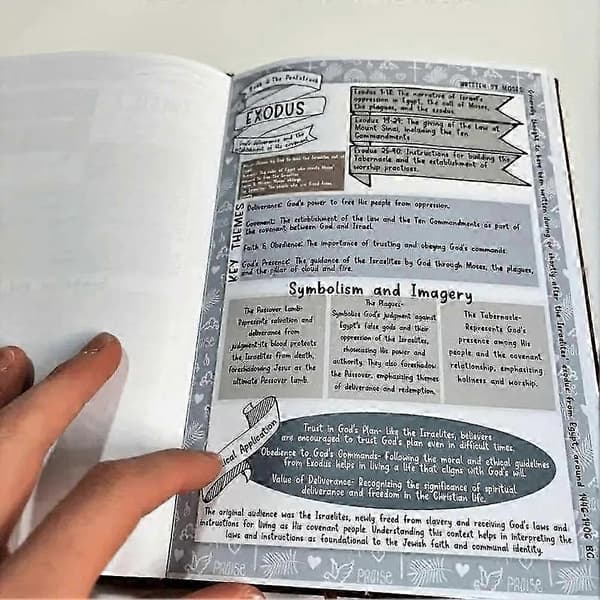 Book 2: The Pentateuch
EXODUS
God's deliverance and the
establishment of His covenant
WRITTEN BY MOSES
Exodus 1-18: The narrative of Israel's
oppression in Egypt, the call of Moses,
the plagues, and the exodus
Exodus 19-24: The giving of the Law at
Mount Sinai, including the Ten
Commandments
Exodus 25-40: Instructions for building the
Tabernacle and the establishment of
worship practices.
KEY THEMES
Deliverance: God's power to free His people from oppression.
Covenant: The establishment of the Law and the Ten Commandments as part of
the covenant between God and Israel.
Faith & Obedience: The importance of trusting and obeying God's commands.
God's Presence: The guidance of the Israelites by God through Moses, the plagues,
and the pillar of cloud and fire.
Symbolism and Imagery
The Passover Lamb-
Represents salvation and
deliverance from
judgment-its blood protects
the Israelites from death,
foreshadowing Jesus as the
ultimate Passover Lamb.
The Plagues-
Symbolize God's judgment against
Egypt's false gods and their
oppression of the Israelites,
showcasing His power and
authority. They also foreshadow
the Passover, emphasizing themes
of deliverance and redemption.
The Tabernacle-
Represents God's
presence among His
people and the covenant
relationship, emphasizing
holiness and worship.
Application
Trust in God's Plan- Like the Israelites, believers
are encouraged to trust God's plan even in difficult times.
Obedience to God's Commands- Following the moral and ethical guidelines
from Exodus helps in living a life that aligns with God's will.
Value of Deliverance- Recognizing the significance of spiritual
deliverance and freedom in the Christian life.
The original audience was the Israelites, newly freed from slavery and receiving God's laws and
instructions for living as His covenant people. Understanding this context helps in interpreting the
laws and instructions as foundational to the Jewish faith and communal identity.
PRAISE
PRAISE
PRAISE